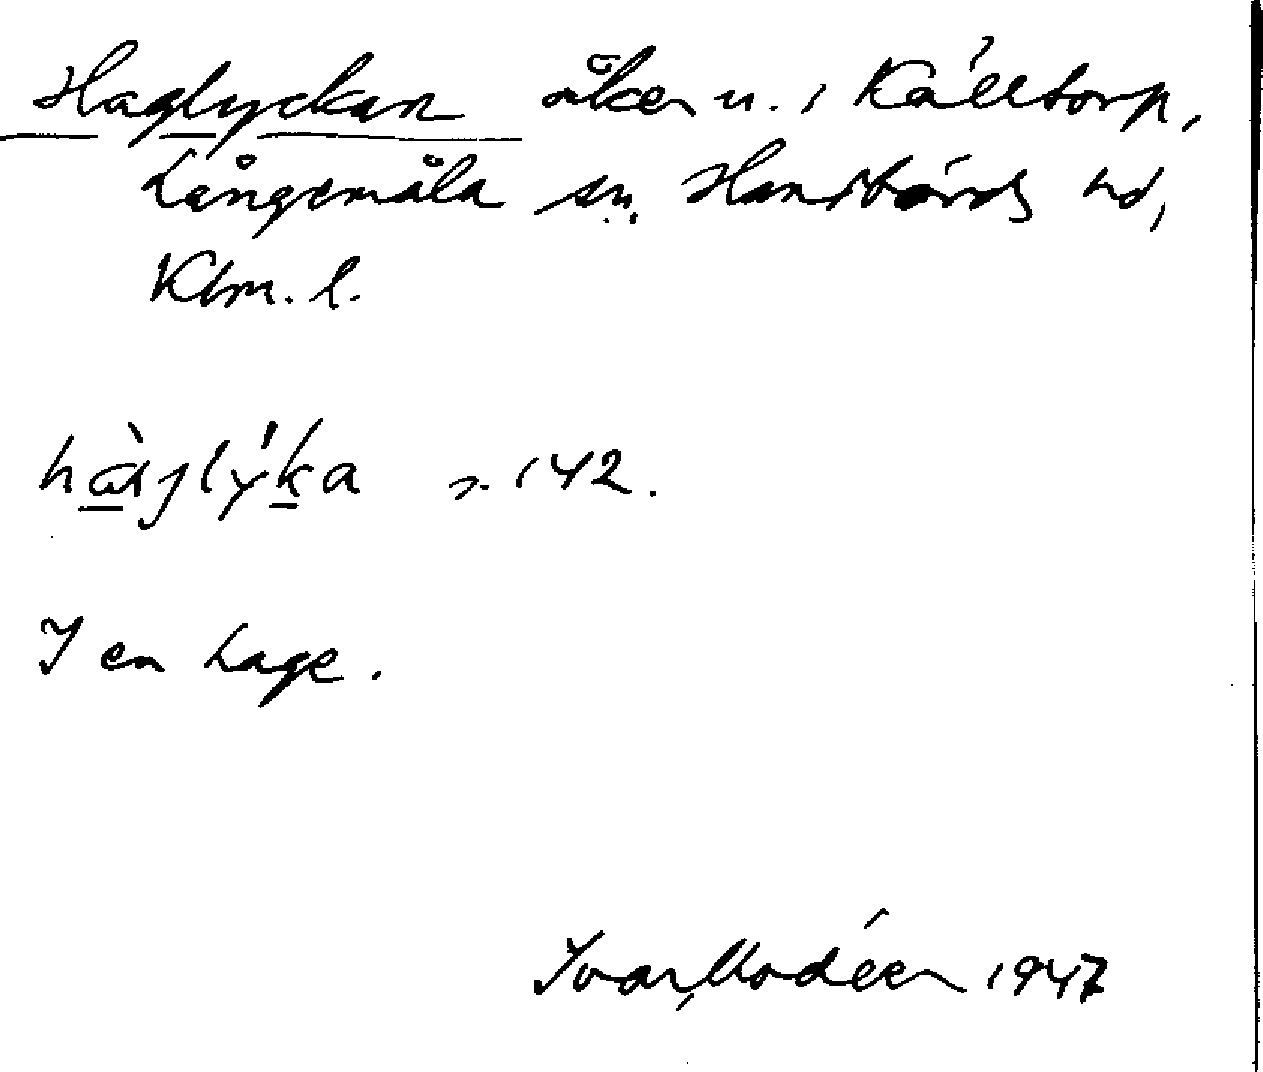 Haglyckan åker n. i Källtorp,
Långemåla sn. Handbörds hd,
Klm. l.
hàglýka s. 142.
I en hage.
Ivar Modéer 1947